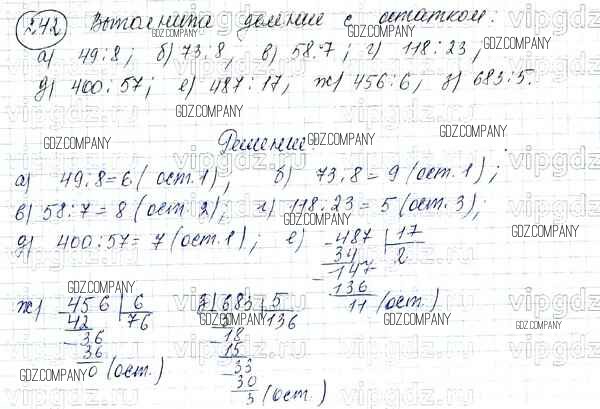 242 Выполните деление с остатком:
а) 49:8; б) 73:8, в) 58:7; г) 118:23,
д) 400:57; е) 487:17, ж) 456:6, з) 683:5.
Решение:
а) 49:8=6 (ост.1), б) 73:8=9 (ост.1);
в) 58:7=8 (ост.2); г) 118:23=5 (ост.3),
д) 400:57=7 (ост.1); е) 487 | 17
34 | 2
147
136
11 (ост.)
ж) 456 | 6
42 | 76
36
36
0 (ост.)
з) 683 | 5
5 | 136
18
15
33
30
3 (ост.)
vipgdz.ru
GDZ.COMPANY